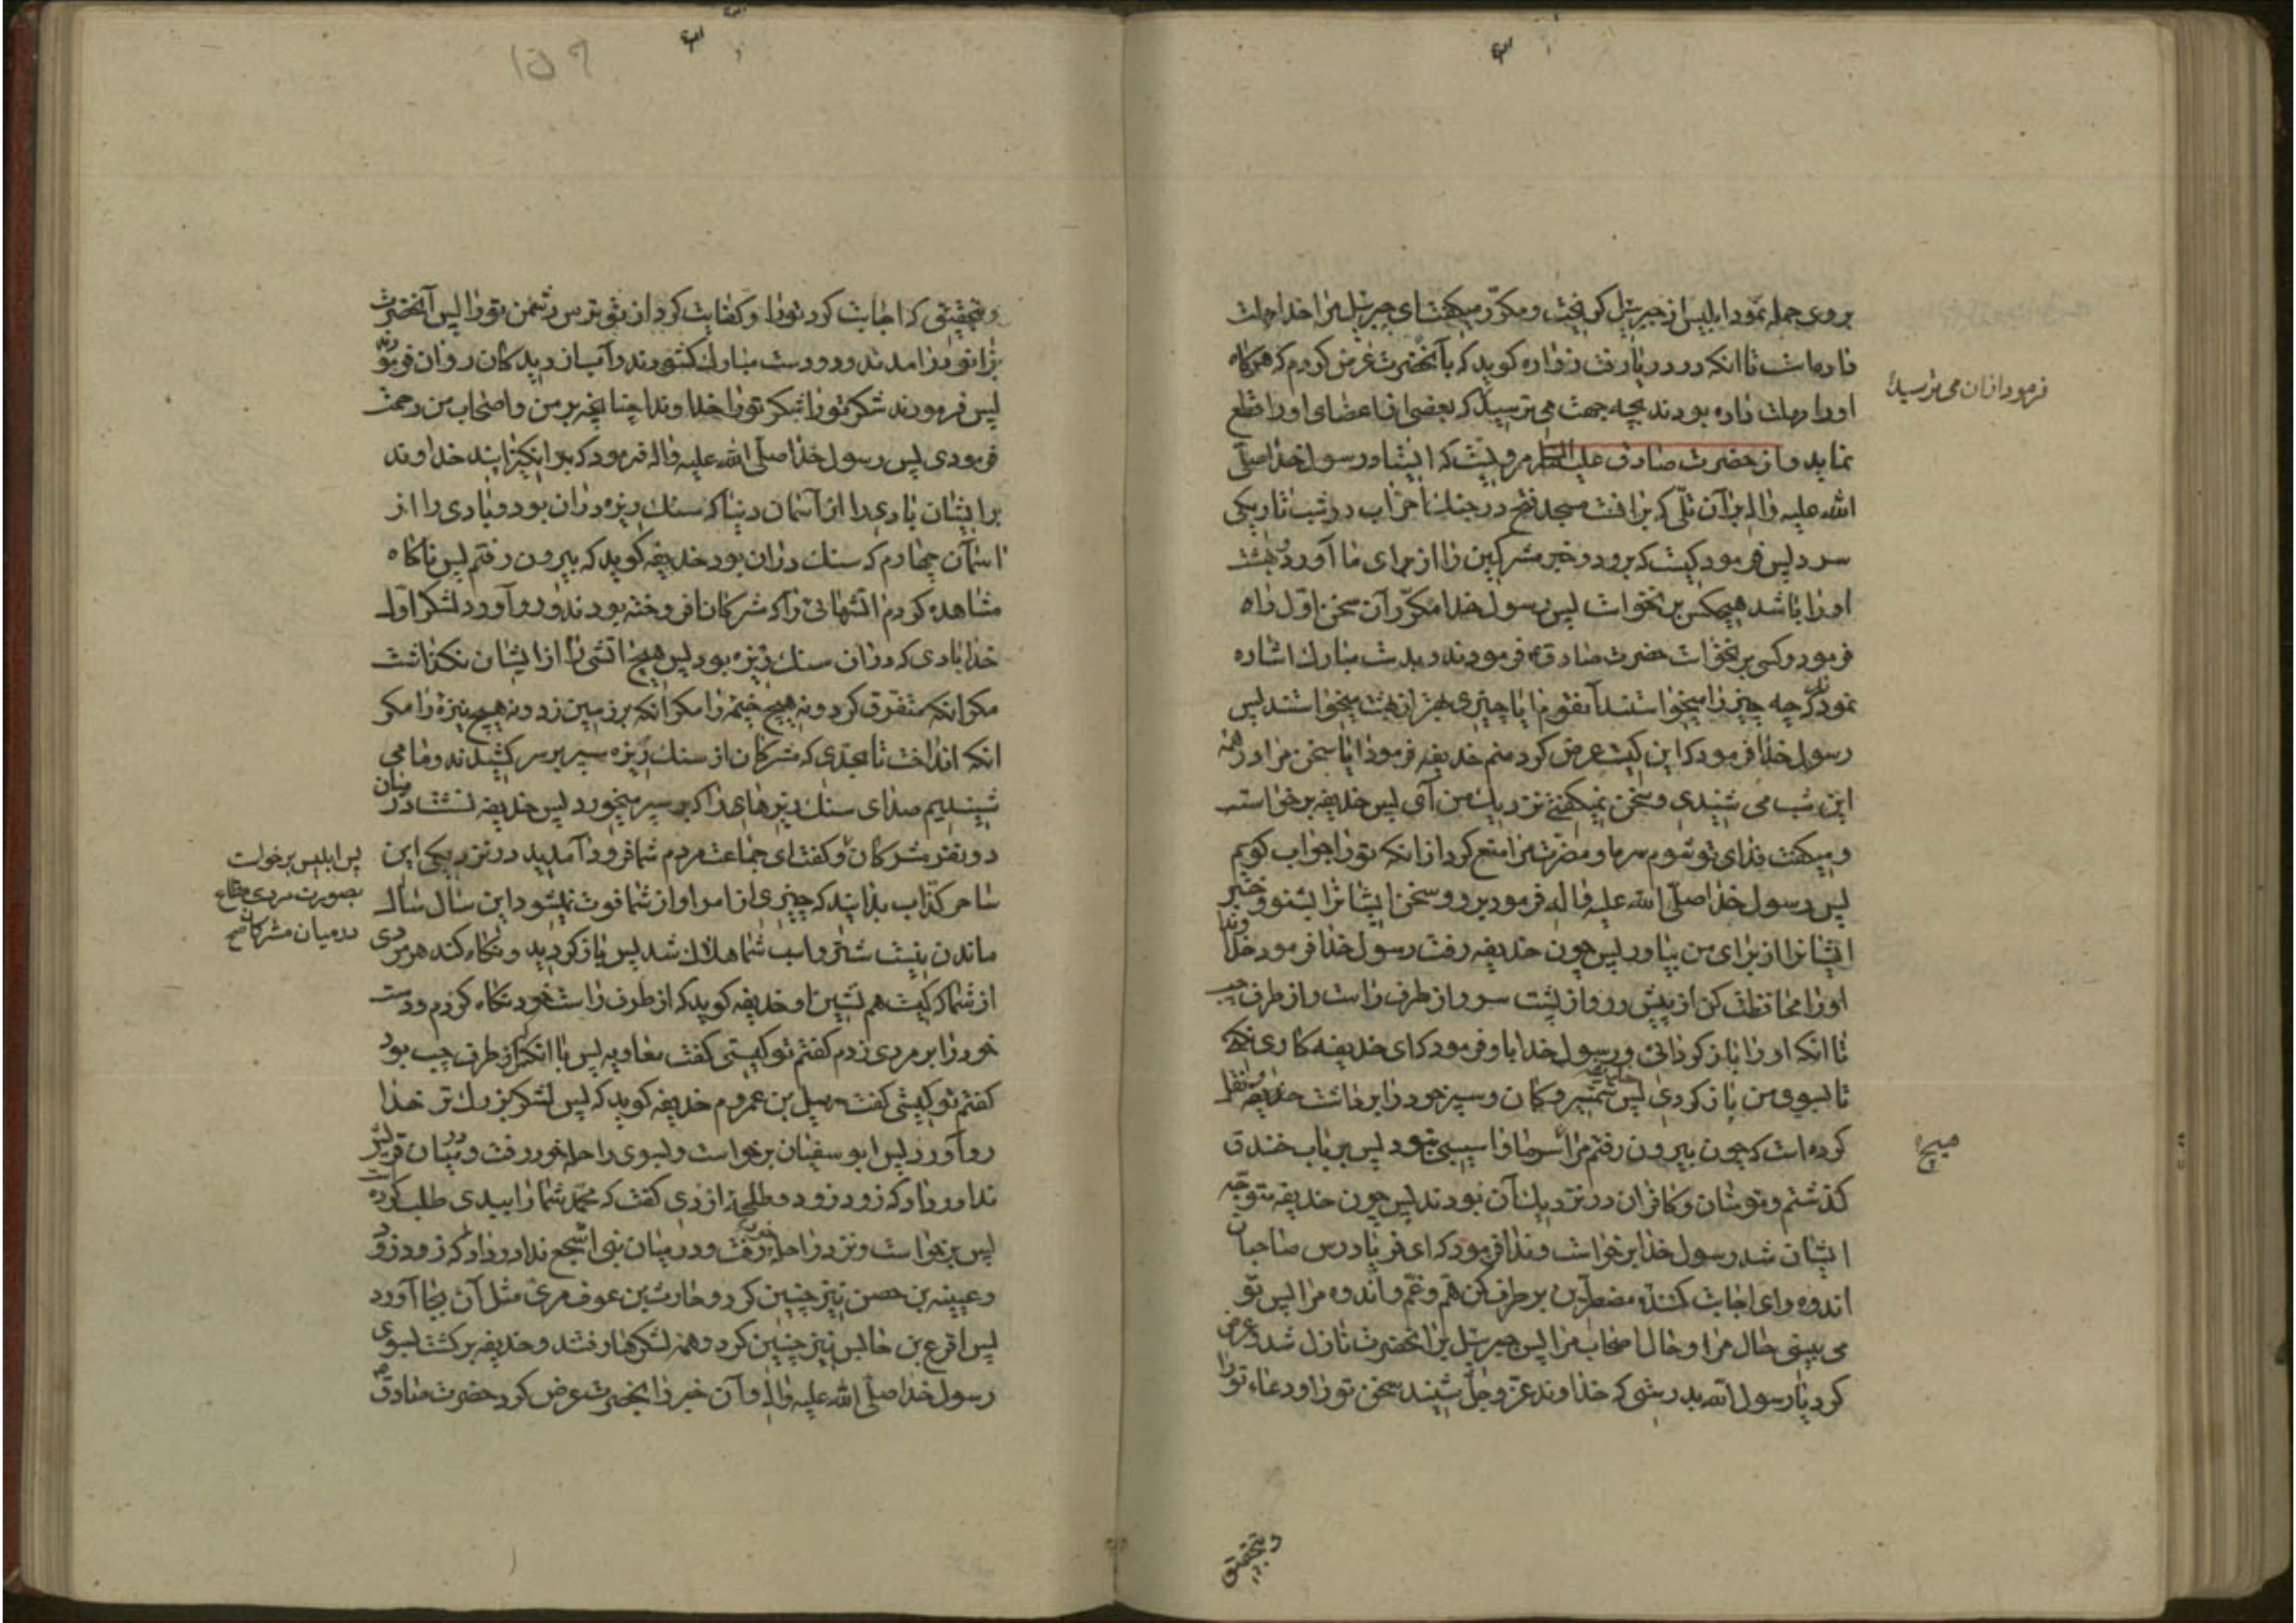 بروی حمله نمود ابلیس از جبرئیل گریخت و مکرّر میگفت ای جبرئیل مرا خدا مهلت
داده است تا انکه در دریا رفت زراره کوید که بآنحضرت عرض کردم که هرکاه
اورا مهلت داده بودند بچه جهت می ترسید که بعضی از اعضای اورا قطع
فرمود از ان می ترسید
نماید و از حضرت صادق علیه السلام مرویست که ایشتاد رسول خدا صلّی
الله علیه واله بر آن تلّی که برانست مسجد فتح در جنك احزاب در شب تاریکی
سرد پس فرمود کیست که برود و خبر مشرکین را از برای ما آورد و بهشت
اورا باشد هیچکس برنخواست پس رسول خدا مکرّر آن سخن اوّل راه
فرمود و کسی برنخواست حضرت صادق فرمودند و بدست مبارك اشاره
نمود که چه چیز را میخواستند آنقوم ایا چیزی بهتر از بهشت میخواستند پس
رسول خدا فرمود که این کیست عرض کرد منم حذیفه فرمود ایا سخن مرا در همه
این شب می شنیدی و سخن نمیکفتی نزدیك من آی پس حذیفه برخواست
و میکفت فدای تو شوم سرما و مضرت مرا منع کرد از انکه تورا جواب کویم
پس رسول خدا صلّی الله علیه واله فرمود برو و سخن ایشانرا بشنو و خبر
ایشانرا از برای من بیاور پس چون حذیفه رفت رسول خدا فرمود خداوندا
اورا محافظت کن از پیش رو و از پشت سر و از طرف راست و از طرف چپ
تا انکه اورا باز کردانی و رسول خدا باو فرمود که ای حذیفه کاری نکنی
تا بسوی من باز کردی پس شمشیر و کمان و سپر خود را برداشت حذیفه نقل
کرده است که چون بیرون رفتم مرا سرما و اسیبی نبود پس بر باب خندق
صبح
کذشتم و مؤمنان و کافران در نزدیك آن بودند پس چون حذیفه متوجّه
ایشان شد رسول خدا برخواست و ندا فرمود که ای فریادرس صاحبان
اندوه و ای اجابت کننده مضطرّین بر طرف کن همّ و غمّ و اندوه مرا پس تو
می بینی حال مرا و حال اصحاب مرا پس جبرئیل بر انحضرت نازل شد و عرض
کرد یا رسول الله بدرستی که خداوند عزّ وجلّ شنید سخن تورا و دعاء تورا
و بتحقیق
۱۵۹
و بتحقیق که اجابت کرد تورا و کفایت کرد از تو ترس دشمن تورا پس آنحضرت
بزانو در امدند و دو دست مبارك کشودند و آب از دیدکان روان فرمودند
پس فرمودند شکر تورا شکر تورا خداوندا چنانچه بر من و اصحاب من رحمت
فرمودی پس رسول خدا صلّی الله علیه واله فرمود که برانکیزانید خداوند
برایشان بادی را از آسمان دنیا که سنك ریزه دران بود و بادی را از
اسمان چهارم که سنك دران بود حذیفه کوید که بیرون رفتم پس ناکاه
مشاهده کردم اتشهائی را که مشرکان افروخته بودند و رو آورد لشکر اوّل
خدا بادی که دران سنك ریزه بود پس هیچ اتشی را از ایشان نکذاشت
مکر انکه متفرّق کرد و نه هیچ خیمه را مکر انکه بر زمین زد و نه هیچ نیزه را مکر
انکه انداخت تا بحدّی که مشرکان از سنك ریزه سپر بر سر کشیدند و ما می
شنیدیم صدای سنك ریزهای را که بر سپر میخورد پس حذیفه نشست در میان
دو نفر مشرکان و کفت ای جماعت مردم شما فرود آمدید در نزدیکی این
پس ابلیس برخواست
بصورت مردی مطاع
در میان مشرکان صح
ساحر کذّاب بدانید که چیزی از امر او از شما فوت نمیشود این سال سال
ماندن نیست شتر و اسب شما هلاك شد پس باز کردید و نکاه کند هر مردی
از شما که کیست هم نشین او حذیفه کوید که از طرف راست خود نکاه کردم و دست
خود را بر مردی زدم کفتم تو کیستی کفت معاویه پس با انکه از طرف چپ بود
کفتم تو کیستی کفت سهیل بن عمروم حذیفه کوید که پس لشکر بزرك تر خدا
رو آورد پس ابو سفیان برخواست و بسوی راحله خود رفت و در میان قریش
ندا در داد که زود زود و طلحه ازدی کفت که محمّد شما را ببدی طلب کرده است
پس برخواست و نزد راحله خود رفت و در میان بنی اشجع ندا در داد که زود زود
و عیینه بن حصن نیز چنین کرد و حارث بن عوف مری مثل آن بجا آورد
پس اقرع بن حابس نیز چنین کرد و همه لشکرها رفتند و حذیفه برکشت بسوی
رسول خدا صلّی الله علیه واله و آن خبر را بحضرت عرض کرد حضرت صادق